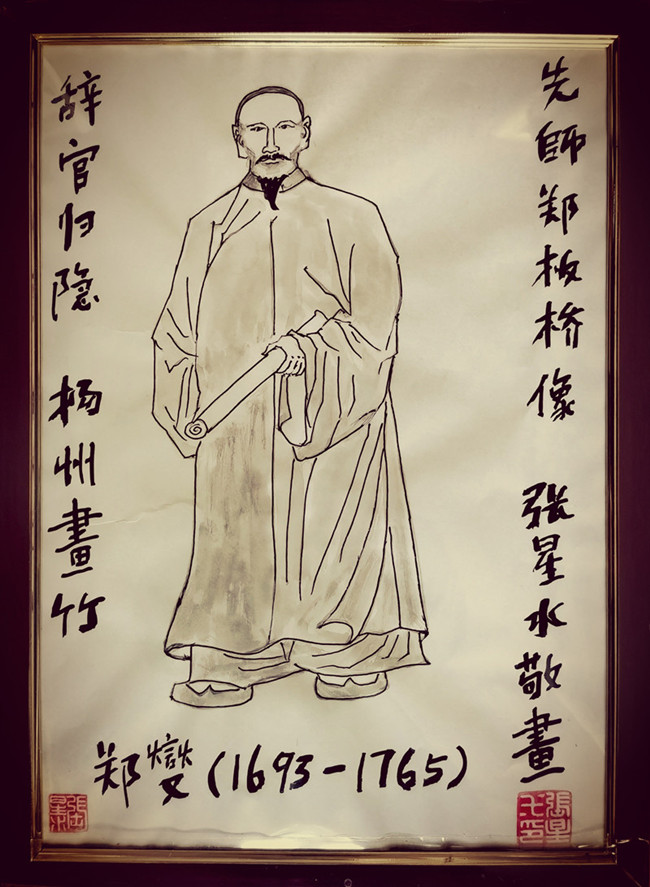 先師郑板桥像 张星水敬畫
辞官归隐 杨州畫竹
郑燮(1693-1765)